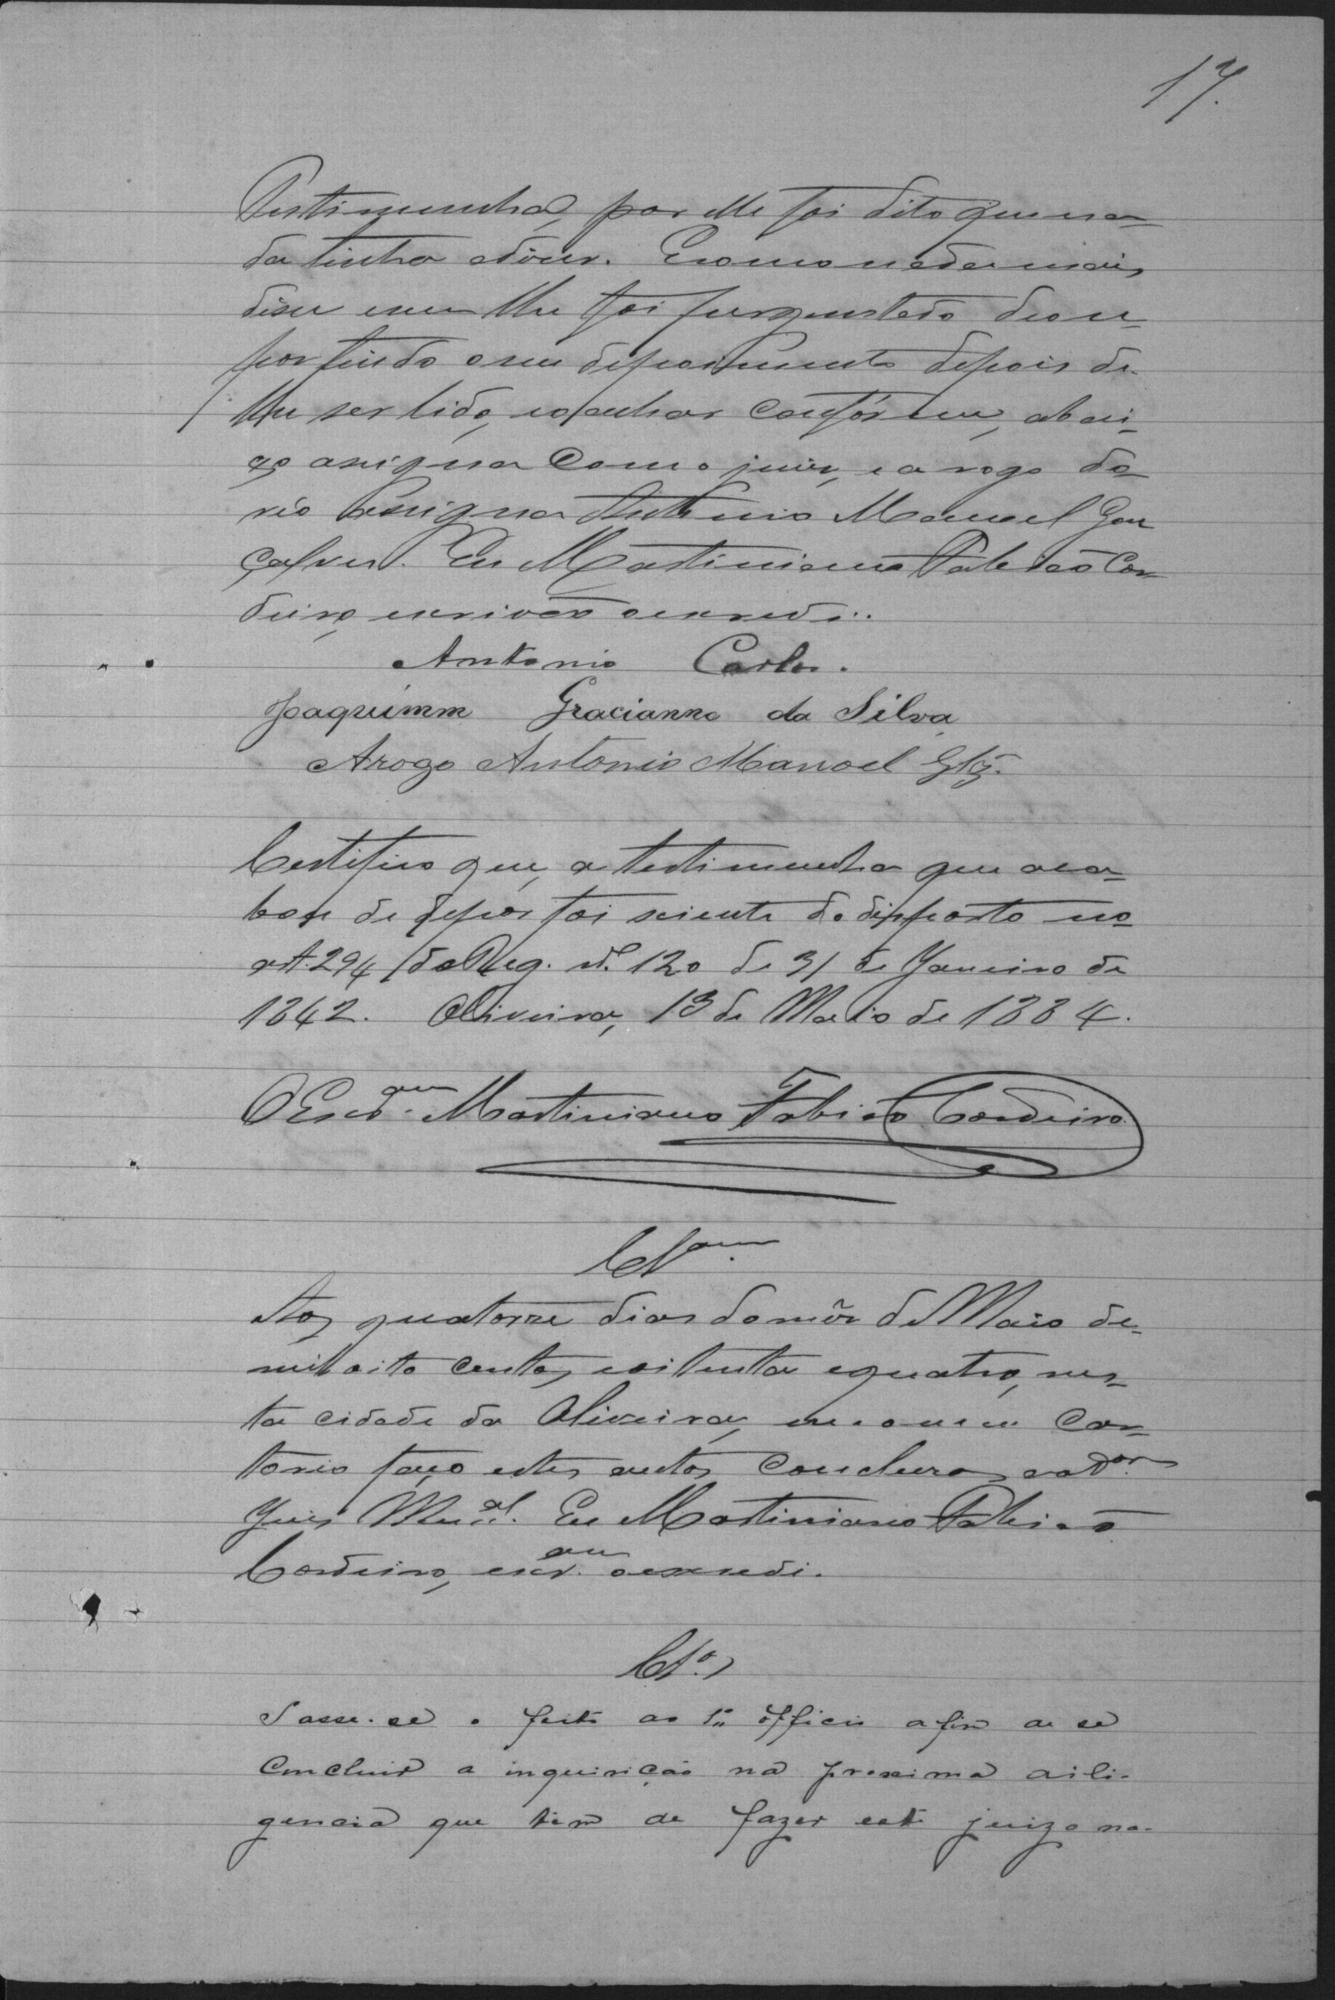 17.
Testimunha, por elle foi dito que na-
da tinha adizer. E como nada mais
disse nem lhe foi perguntado deu-se
por findo o seu depoimento depois de
lhe ser lido, e o achar confórme, abai-
xo assigna com o juiz, e a rogo do
réo assigna Antonio Manoel Gon
çalves. Eu Martiniano Fabião Cor
deiro, escrivão o escrevi..
Antonio Carlos.
Joaquimm Gracianno da Silva
Arogo Antonio Manoel Glz.
Certifico que, a testimunha que aca-
bou de depor foi sciente do disposto no
art. 294 do Reg. nº. 120 de 31 de Janeiro de
1842. Oliveira, 13 de Maio de 1884.
O Escr.am Martiniano Fabião Cordeiro
Cls.am
Aos quatorze dias do mês de Maio de
mil oito centos, e oitenta e quatro, nes-
ta cidade da Oliveira, em o meu Car-
torio faço estes autos Conclusos ao Dor.
Juis Mun.al. Eu Martiniano Fabião
Cordeiro, escr.am o escrevi.
Cls.os
Passe-se o feito ao 1º officio afim de se
Concluir a inquirição na proxima dili-
gencia que tem de fazer este juizo na-